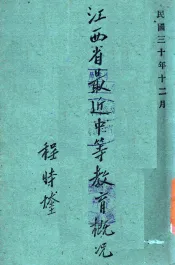 民國三十年十二月
江西省最近中等教育概况
程時煃